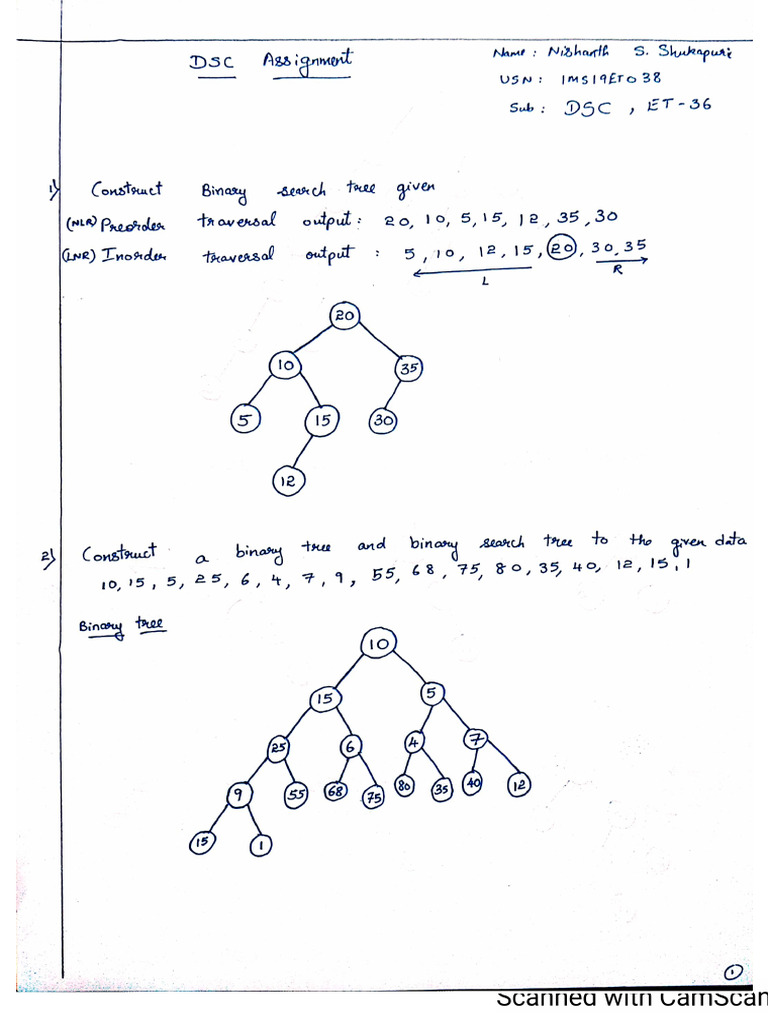 DSC Assignment
Name : Nishanth S. Shukapuri
USN : 1MS19ET038
Sub : DSC , ET-36
1) Construct Binary search tree given
(NLR) Preorder traversal output : 20, 10, 5, 15, 12, 35, 30
(LNR) Inorder traversal output : 5, 10, 12, 15, 20, 30, 35
L R
20
10 35
5 15 30
12
2) Construct a binary tree and binary search tree to the given data
10, 15, 5, 25, 6, 4, 7, 9, 55, 68, 75, 80, 35, 40, 12, 15, 1
Binary tree
10
15 5
25 6 4 7
9 55 68 75 80 35 40 12
15 1
1
Scanned with CamScan